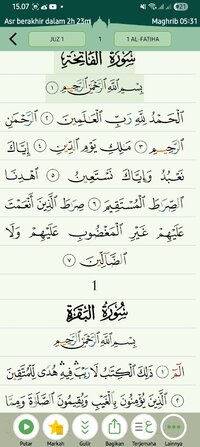 15.07
21
Asr berakhir dalam 2h 23m
Maghrib 05:31
JUZ 1
1
1 AL-FATIHA
سُورَةُ الفَاتِحَةِ
بِسْمِ اللَّهِ الرَّحْمَٰنِ الرَّحِيمِ ١
الْحَمْدُ لِلَّهِ رَبِّ الْعَالَمِينَ ٢ الرَّحْمَٰنِ
الرَّحِيمِ ٣ مَالِكِ يَوْمِ الدِّينِ ٤ إِيَّاكَ
نَعْبُدُ وَإِيَّاكَ نَسْتَعِينُ ٥ اهْدِنَا
الصِّرَاطَ الْمُسْتَقِيمَ ٦ صِرَاطَ الَّذِينَ أَنْعَمْتَ
عَلَيْهِمْ غَيْرِ الْمَغْضُوبِ عَلَيْهِمْ وَلَا
الضَّالِّينَ ٧
1
سُورَةُ البَقَرَةِ
بِسْمِ اللَّهِ الرَّحْمَٰنِ الرَّحِيمِ
الم ١ ذَٰلِكَ الْكِتَابُ لَا رَيْبَ فِيهِ هُدًى لِلْمُتَّقِينَ
٢ الَّذِينَ يُؤْمِنُونَ بِالْغَيْبِ وَيُقِيمُونَ الصَّلَاةَ وَمِمَّا
Putar
Markah
Gulir
Bagikan
Terjemaha
Lainnya